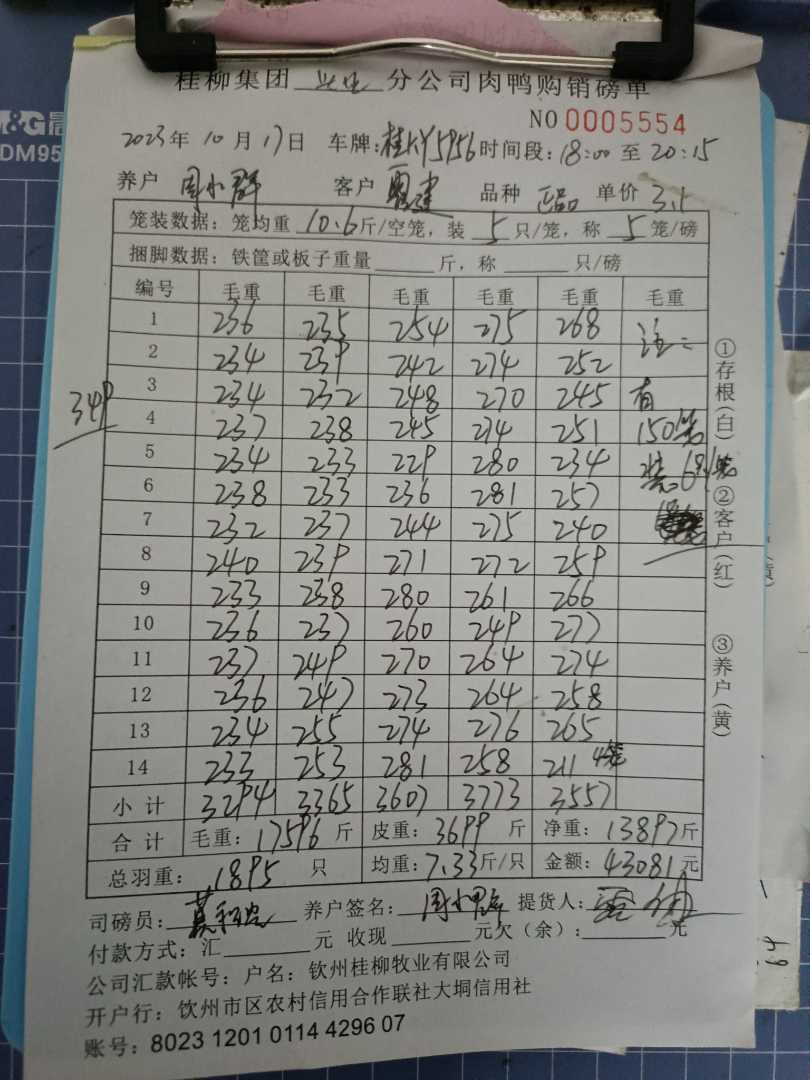 M&G晨
DM95
桂柳集团 分公司肉鸭购销磅单
NO 0005554
2023年 10月 17日 车牌:桂KY5956 时间段:18:00 至 20:15
养户 周小群 客户 建 品种 正品 单价 3.1
笼装数据: 笼均重 10.6 斤/空笼, 装 5 只/笼, 称 5 笼/磅
捆脚数据: 铁筐或板子重量 斤, 称 只/磅
编号 毛重 毛重 毛重 毛重 毛重 毛重
1 236 235 254 275 268 注:
2 234 239 242 274 252
3 234 232 248 270 245 有
349
4 237 238 245 274 251 150笼
5 234 233 229 280 234 装6只/笼
6 238 233 236 281 257
7 232 237 244 275 240
8 240 239 271 272 259
9 233 238 280 261 266
10 236 237 260 249 277
11 237 249 270 264 274
12 236 247 273 264 258
13 234 255 274 276 265
14 233 253 281 258 211 4笼
小计 3294 3365 3607 3773 3557
合计 毛重: 17596 斤 皮重: 3699 斤 净重: 13897 斤
总羽重: 1895 只 均重: 7.33 斤/只 金额: 43081 元
①存根(白) ②客户(红) ③养户(黄)
司磅员: 养户签名: 周小群 提货人:
付款方式: 汇 元 收现 元欠(余): 元
公司汇款帐号: 户名: 钦州桂柳牧业有限公司
开户行: 钦州市区农村信用合作联社大垌信用社
账号: 8023 1201 0114 4296 07